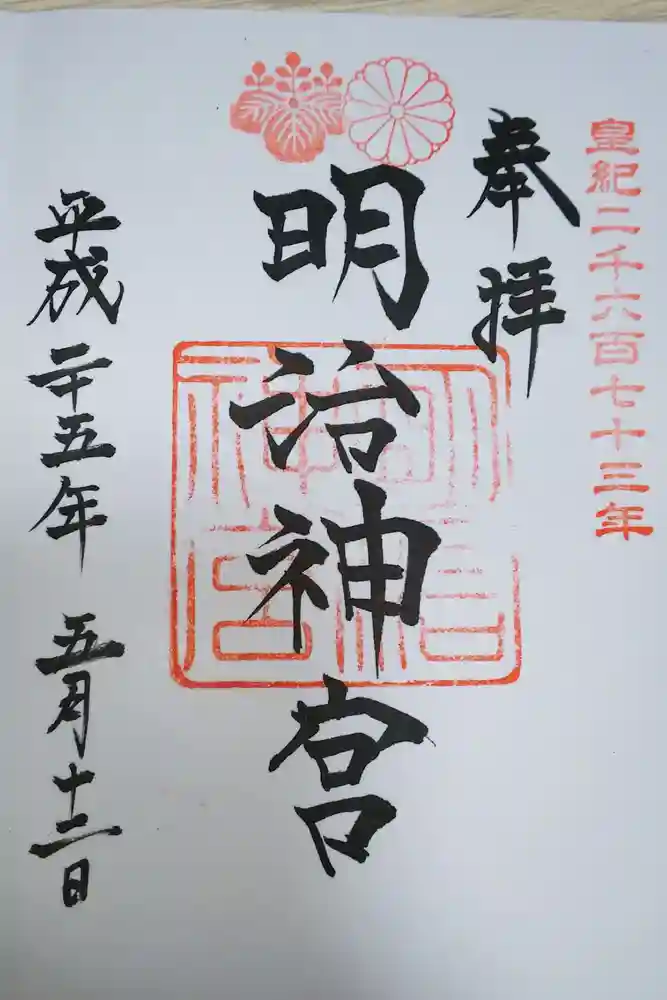 皇紀二千六百七十三年
奉拝
明治神宮
平成二十五年五月十二日
明治神宮